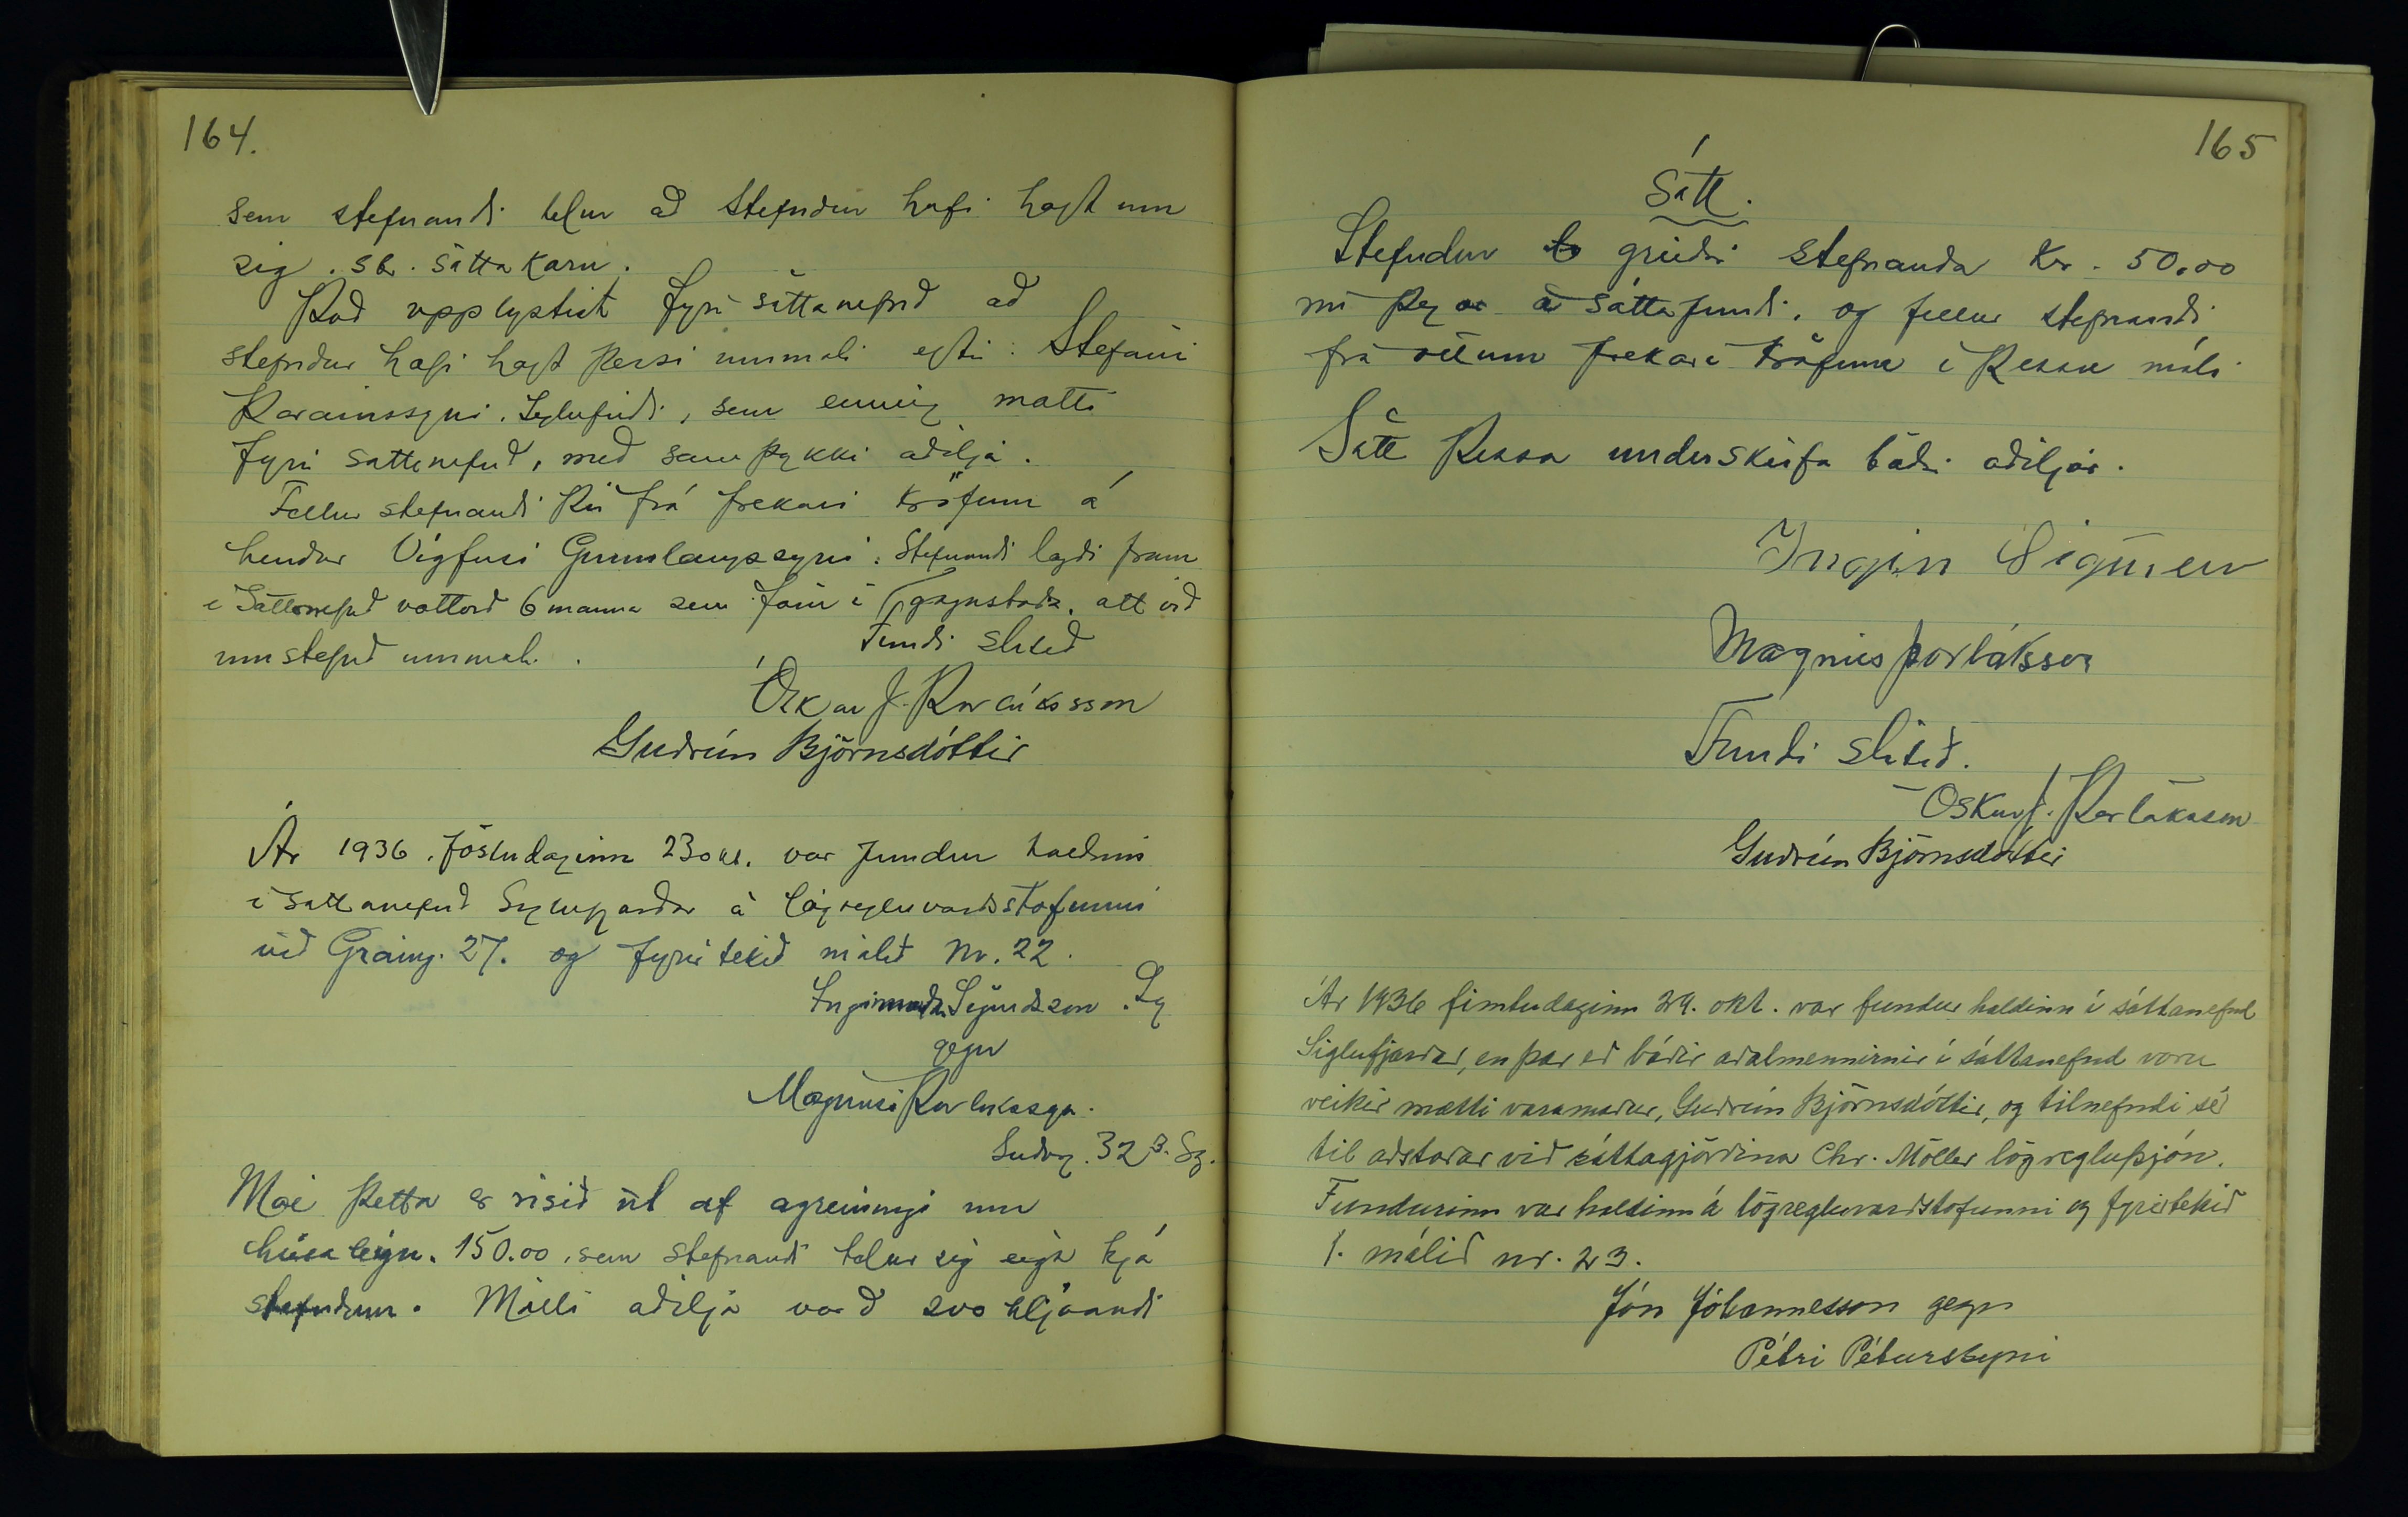 164.
sem stefnandi telur að stefndur hafi haft um
sig. sbr. sáttakæru.
Það upplýstist fyrir sáttanefnd að
stefndur hafi haft þessi ummæli eftir Stefáni
Þórarinssyni. Siglufirði, sem einnig mætti
fyrir sáttanefnd, með samþykki aðilja.
Fellur stefnandi því frá frekari kröfum á
hendur Vigfúsi Gunnlaugssyni. Stefnandi lagði fram
í sáttanefnd vottorð 6 manna sem fóru í átt við
umstefnd ummæli.
Fundi slitið
Óskar J. Þorláksson
Guðrún Björnsdóttir
Ár 1936. föstudaginn 23 okt. var fundur haldinn
í sáttanefnd Siglufjarðar á lögregluvarðstofunni
við Gránug. 27. og fyrirtekið málið nr. 22.
Ingimundur Sigurðsson. Sg
gegn
Magnúsi Þorlákssyni.
Suðurg. 32 B. Sg.
Mál þetta er risið út af ágreiningi um
húsaleigu. 150.00. sem stefnandi telur sig eiga hjá
stefndum. Milli aðilja varð svohljóðandi
165
Sátt.
Stefndur greiði stefnanda kr. 50.00
nú þegar á sáttafundi. og fellur stefnandi
frá öllum frekari kröfum í þessu máli
Sátt þessa underskrifa báðir aðiljar.
Magnús Þorláksson
Fundi slitið.
Óskar J. Þorláksson
Guðrún Björnsdóttir
Ár 1936 fimtudaginn 29. okt. var fundur haldinn í sáttanefnd
Siglufjarðar, en þar eð báðir aðalmennirnir í sáttanefnd voru
veikir mætti varamaður, Guðrún Björnsdóttir, og tilnefndi sér
til aðstoðar við sáttagjörðina Chr. Möller lögregluþjón.
Fundurinn var haldinn á lögregluvarðstofunni og fyrirtekið
1. málið nr. 23.
Jón Jóhannesson gegn
Pétri Péturssyni